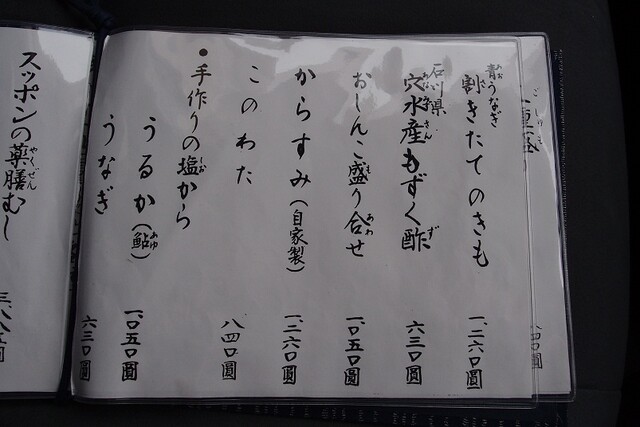 青うなぎ
割きたてのきも 一、二六〇圓
石川県
穴水産もずく酢 六三〇圓
おしんこ盛り合せ 一、〇五〇圓
からすみ(自家製) 一、二六〇圓
このわた 八四〇圓
●手作りの塩から
うるか(鮎) 一、〇五〇圓
うなぎ 六三〇圓
スッポンの薬膳むし 三、八八五圓